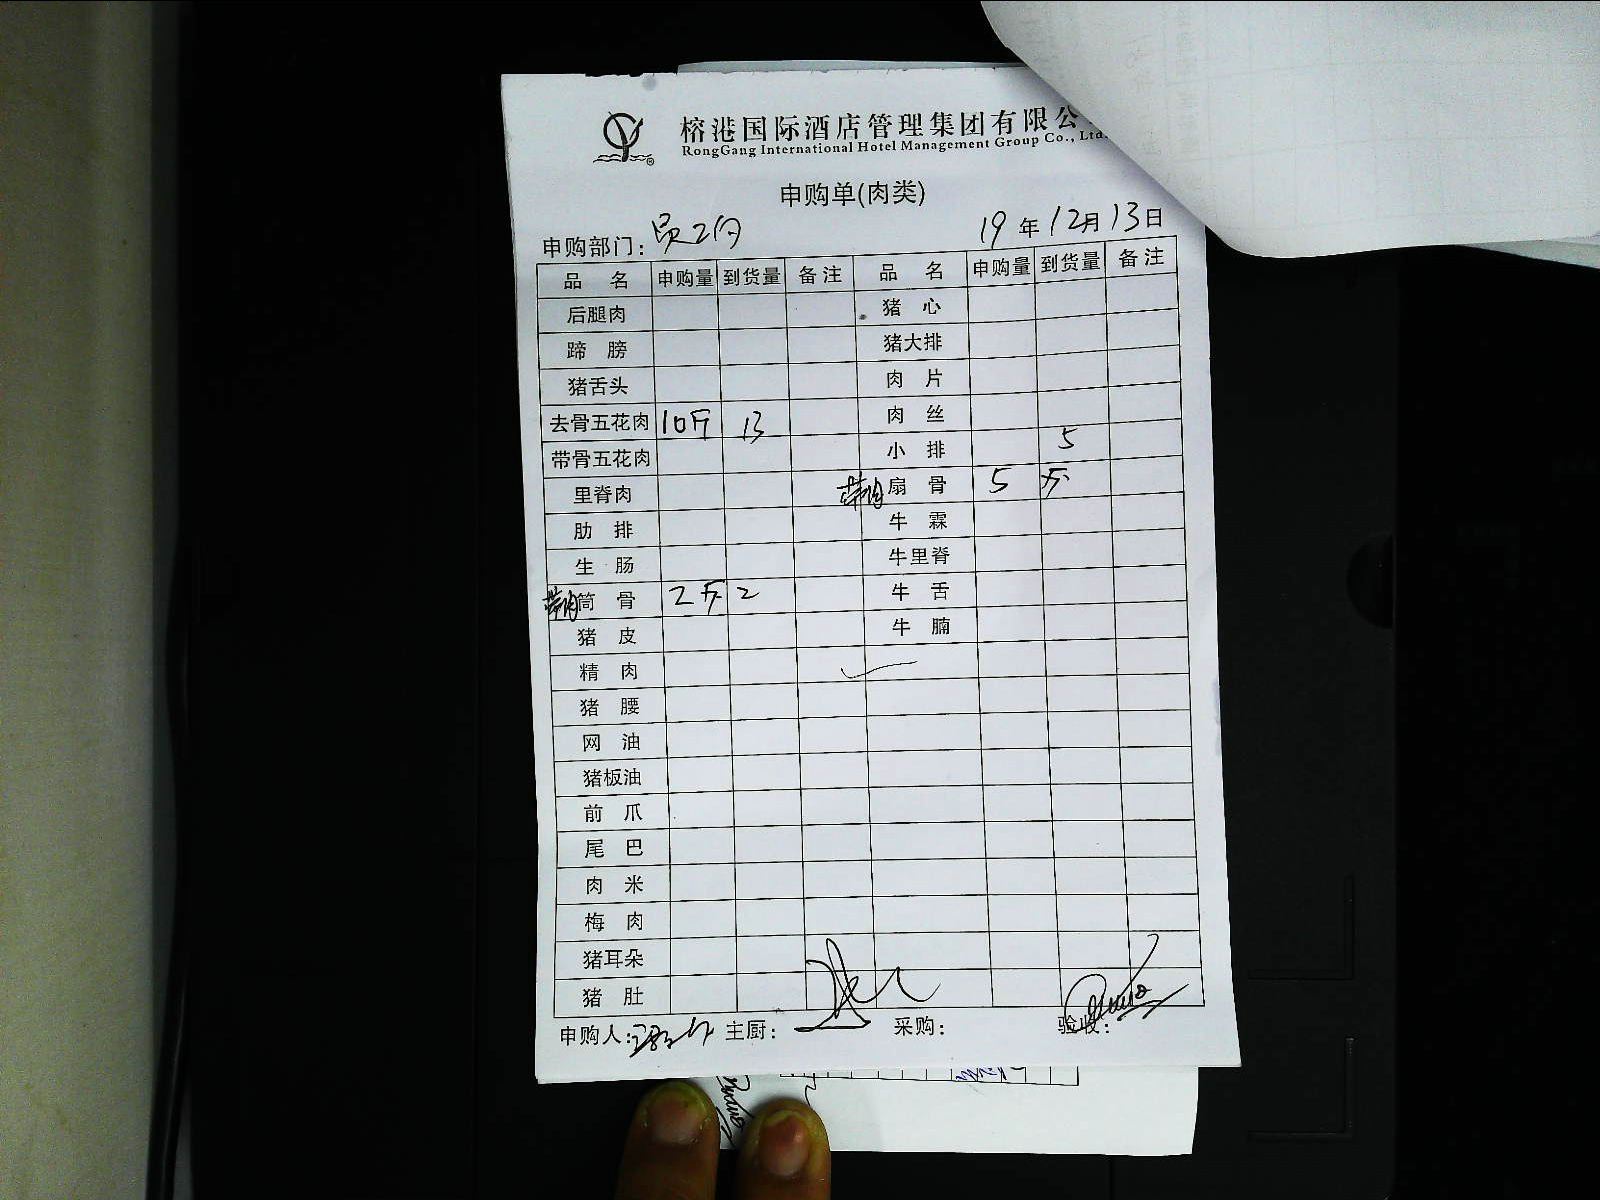 榕港国际酒店管理集团有限公
RongGang International Hotel Management Group Co., Ltd.
申购单(肉类)
申购部门: 19年12月13日
品名 申购量 到货量 备注 品名 申购量 到货量 备注
后腿肉 猪心
蹄膀 猪大排
猪舌头 肉片
去骨五花肉 10斤 13 肉丝
带骨五花肉 小排 5
里脊肉 带肉扇骨 5斤
肋排 牛霖
生肠 牛里脊
带肉筒骨 2斤 2 牛舌
猪皮 牛腩
精肉
猪腰
网油
猪板油
前爪
尾巴
肉米
梅肉
猪耳朵
猪肚
申购人: 主厨: 采购: 验收: